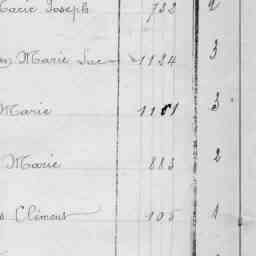 Marie Joseph 722 2
Marie Luc 1124 3
Marie 1101 3
Marie 883 2
Clémens 105 1